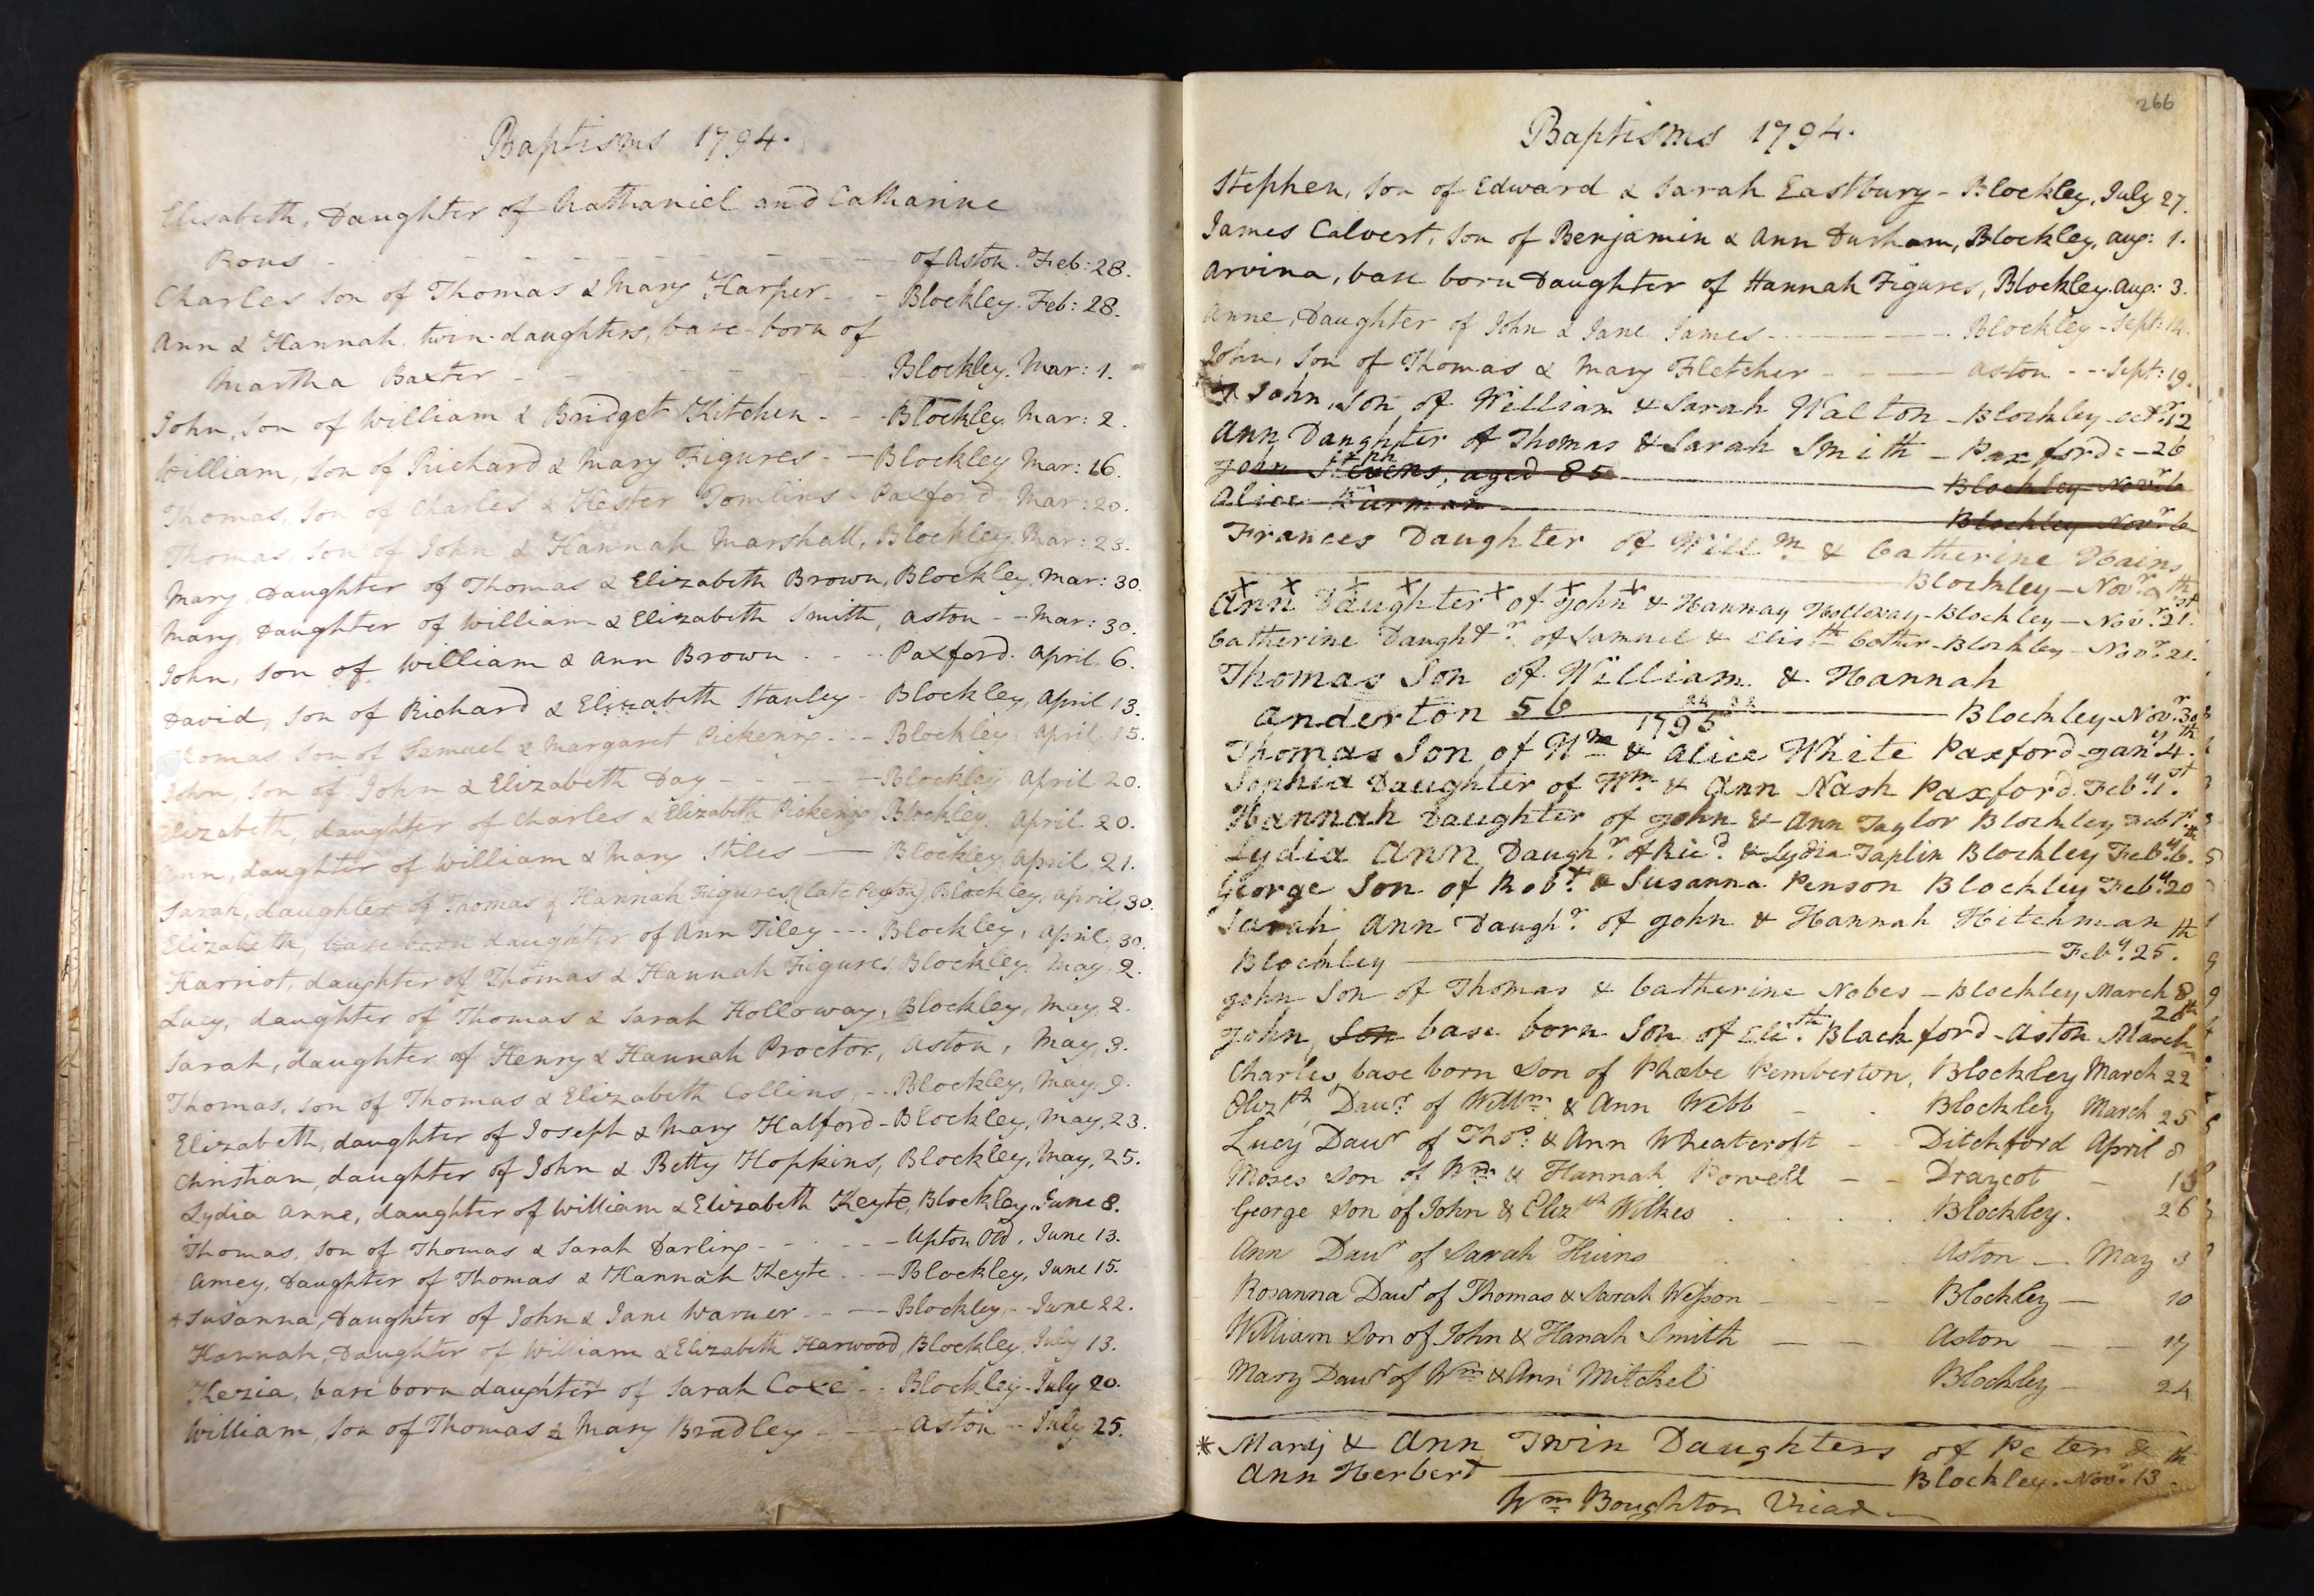 Baptisms 1794.
Elisabeth, Daughter of Nathaniel and Catharine
Rous - - - - - - of Aston. Feb: 28.
Charles Son of Thomas & Mary Harper - - Blockley. Feb: 28.
Ann & Hannah, twin-daughters, base-born of
Martha Baxter - - - - - Blockley. Mar: 1.
John, Son of William & Bridget Kitchen - - Blockley. Mar: 2.
William, Son of Richard & Mary Figures - - Blockley Mar: 16.
Thomas, Son of Charles & Hester Tomlins - Paxford - Mar: 20.
Thomas, Son of John & Hannah Marshall, Blockley, Mar: 23.
Mary, Daughter of Thomas & Elizabeth Brown, Blockley, Mar: 30.
Mary, Daughter of William & Elizabeth Smith, Aston - - Mar: 30.
John, Son of William & Ann Brown - - - Paxford. April 6.
David, Son of Richard & Elizabeth Stanley - Blockley, April 13.
Thomas Son of Samuel & Margaret Pickering - - Blockley April 15.
John, Son of John & Elizabeth Day - - - - Blockley, April 20.
Elizabeth, daughter of Charles & Elizabeth Pickering Blockley, April 20.
Ann, daughter of William & Mary Stiles - Blockley, April 21.
Sarah, daughter of Thomas & Hannah Figures, (late) Blockley, April, 30.
Elizabeth, base born daughter of Ann Tiley - - - Blockley, April, 30.
Harriot, daughter of Thomas & Hannah Figures, Blockley. May, 2.
Lucy, daughter of Thomas & Sarah Holloway, Blockley, May, 2.
Sarah, daughter of Henry & Hannah Proctor, Aston, May, 3.
Thomas, Son of Thomas & Elizabeth Collins, - - Blockley, May, 9.
Elizabeth, daughter of Joseph & Mary Halford - Blockley, May, 23.
Christian, daughter of John & Betty Hopkins, Blockley, May, 25.
Lydia Anne, daughter of William & Elizabeth Keyte, Blockley, June 8.
Thomas, Son of Thomas & Sarah Darling - - - - Upton Old, June 13.
Amey, Daughter of Thomas & Hannah Keyte - - Blockley, June 15.
+ Susanna, Daughter of John & Jane Warner - - - Blockley, - June 22.
Hannah, Daughter of William & Elizabeth Harwood, Blockley, July 13.
Kezia, base born daughter of Sarah Coxe - - Blockley - July 20.
William, Son of Thomas & Mary Bradley - - - Aston - July 25.
266
Baptisms 1794.
Stephen, Son of Edward & Sarah Eastbury - Blockley, July 27.
James Calvert, Son of Benjamin & Ann Durham, Blockley, Aug: 1.
Arvina, base born Daughter of Hannah Figures, Blockley. Aug: 3.
Anne, Daughter of John & Jane James - - - - Blockley - Sept: 14.
John, Son of Thomas & Mary Fletcher - - - Aston - - Sept: 19.
John, Son of William & Sarah Walton - Blockley - Octr. 12
Ann Daughter of Thomas & Sarah Smith - Paxford - - 26
John Stevens, aged 85 Blockley - Novr. 6
Alice Burman Blockley - Novr. 6
Frances Daughter of Willm & Catherine Hains
Blockley - Novr. 9th
Ann Daughter of John & Hannay Holloway - Blockley - Novr. 21st
Catherine Daughtr. of Samuel & Elisth Cother - Blockley - Novr. 21.
Thomas Son of William & Hannah
Anderton 56 Blockley - Novr. 30
1795
Thomas Son of Wm & Alice White Paxford - Jany 4th.
Sophia Daughter of Wm & Ann Nash Paxford. Feby. 1st.
Hannah Daughter of John & Ann Taylor Blockley Feb 1st.
Lydia Ann Daughr. of Ricd. & Lydia Taplin Blockley Feby. 6th.
George Son of Robt. & Susanna Penson Blockley Feby. 20
Sarah Ann Daughr. of John & Hannah Hitchman
Blockley Feby. 25th.
John Son of Thomas & Catherine Nobes - Blockley March 8
John, Son base born Son of Elizth. Blackford - Aston March 20th
Charles, base born Son of Phœbe Pemberton, Blockley March 22
Elizth Dawr. of Willm. & Ann Webb - - Blockley March 25
Lucy Dawr of Thos. & Ann Wheatcroft - - Ditchford April 8
Moses Son of Wm & Hannah Powell - - Draycot - 13
George Son of John & Elizth Wilkes . . . . Blockley. 26
Ann Dawr of Sarah Huins . . . Aston - May 3
Rosanna Dawr of Thomas & Sarah Wesson - - - Blockley - 10
William Son of John & Hanah Smith - - Aston - - 17
Mary Dawr of Wm & Ann Mitchel Blockley - 24
* Mary & Ann Twin Daughters of Peter &
Ann Herbert Blockley - Novr. 13th
Wm Boughton Vicar